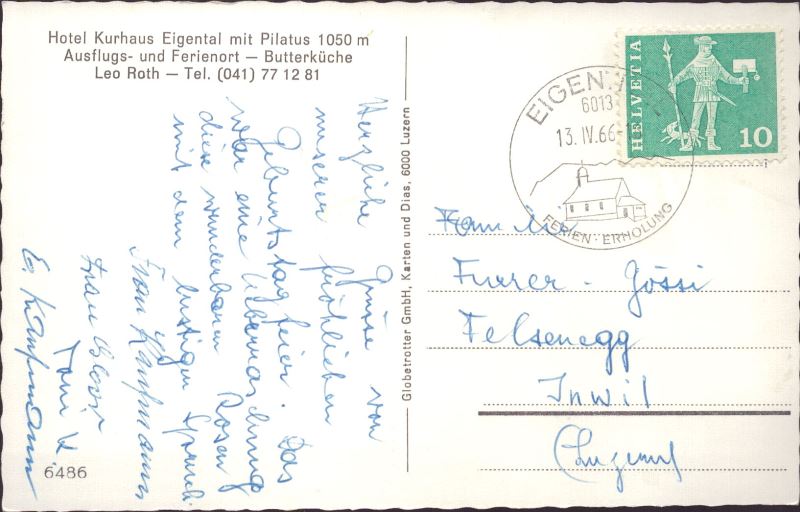 Hotel Kurhaus Eigental mit Pilatus 1050 m
Ausflugs- und Ferienort – Butterküche
Leo Roth – Tel. (041) 77 12 81
Herzliche Grüsse von
unserer fröhlichen
Geburtstagfeier. Das
war eine Überraschung
diese wunderbaren Rosen
mit dem lustigen Spruch.
Frau Kaufmann
Frau
Toni K.
E. Kaufmann
6486
Globetrotter GmbH, Karten und Dias, 6000 Luzern
HELVETIA
10
EIGEN
6013
13. IV. 66
FERIEN · ERHOLUNG
Familie
Furrer - Jössi
Felsenegg
Inwil
(Luzern)